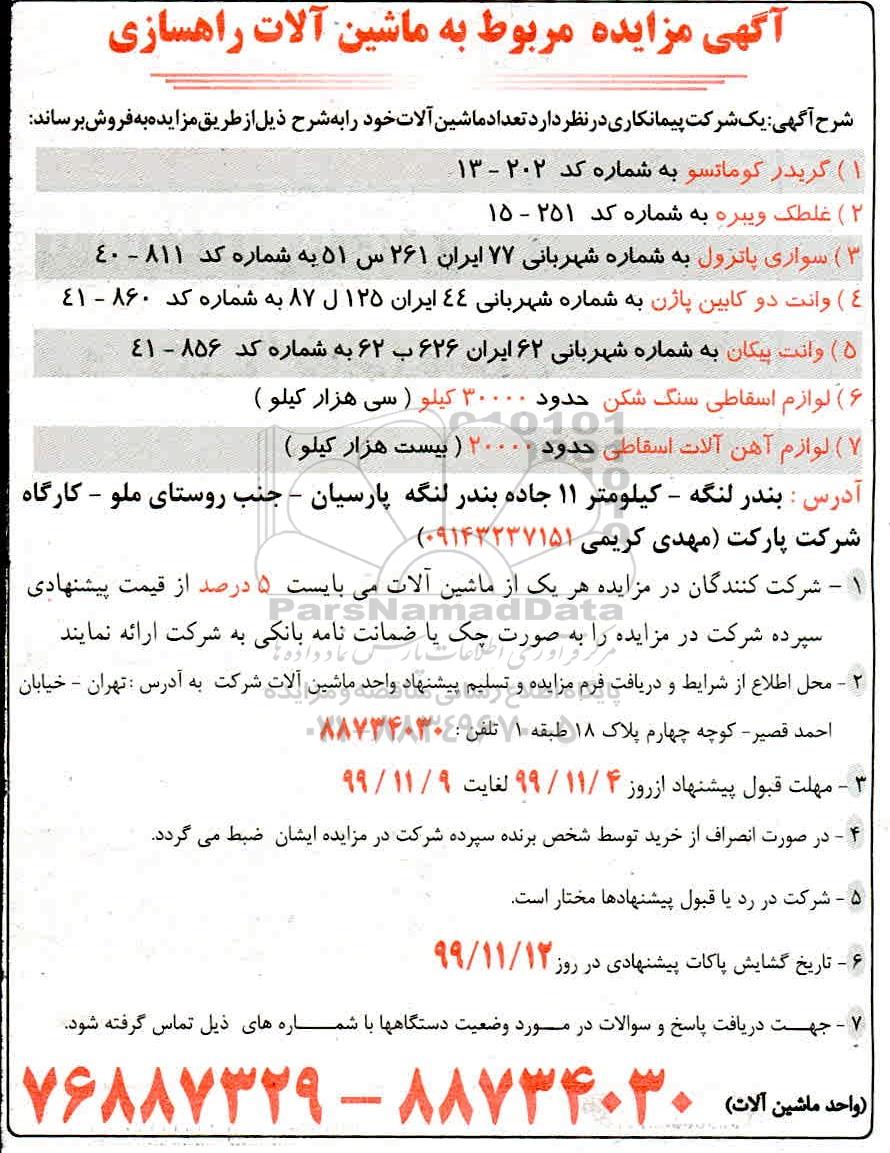 آگهی مزایده مربوط به ماشین آلات راهسازی
شرح آگهی: یک شرکت پیمانکاری در نظر دارد تعداد ماشین آلات خود را به شرح ذیل از طریق مزایده به فروش برساند:
۱ ) گریدر کوماتسو به شماره کد ۲۰۲ - ۱۳
۲ ) غلطک ویبره به شماره کد ۲۵۱ - ۱۵
۳ ) سواری پاترول به شماره شهربانی ۷۷ ایران ۲۶۱ س ۵۱ به شماره کد ۸۱۱ - ۴۰
۴ ) وانت دو کابین پاژن به شماره شهربانی ۴۴ ایران ۱۲۵ ل ۸۷ به شماره کد ۸۶۰ - ۴۱
۵ ) وانت پیکان به شماره شهربانی ۶۲ ایران ۶۲۶ ب ۶۲ به شماره کد ۸۵۶ - ۴۱
۶ ) لوازم اسقاطی سنگ شکن حدود ۳۰۰۰۰ کیلو ( سی هزار کیلو )
۷ ) لوازم آهن آلات اسقاطی حدود ۲۰۰۰۰ ( بیست هزار کیلو )
آدرس : بندر لنگه - کیلومتر ۱۱ جاده بندر لنگه پارسیان - جنب روستای ملو - کارگاه
شرکت پارکت (مهدی کریمی ۰۹۱۴۳۲۳۷۱۵۱)
۱ - شرکت کنندگان در مزایده هر یک از ماشین آلات می بایست ۵ درصد از قیمت پیشنهادی
ParsNamadData
سپرده شرکت در مزایده را به صورت چک یا ضمانت نامه بانکی به شرکت ارائه نمایند
مرکز فرآوری اطلاعات پارس نماد داده ها
۲ - محل اطلاع از شرایط و دریافت فرم مزایده و تسلیم پیشنهاد واحد ماشین آلات شرکت به آدرس : تهران - خیابان
پایگاه اطلاع رسانی مناقصه و مزایده
احمد قصیر- کوچه چهارم پلاک ۱۸ طبقه ۱ تلفن : ۸۸۷۳۴۰۳۰
۳ - مهلت قبول پیشنهاد از روز ۹۹/۱۱/۴ لغایت ۹۹/۱۱/۹
۴ - در صورت انصراف از خرید توسط شخص برنده سپرده شرکت در مزایده ایشان ضبط می گردد.
۵ - شرکت در رد یا قبول پیشنهادها مختار است.
۶ - تاریخ گشایش پاکات پیشنهادی در روز ۹۹/۱۱/۱۲
۷ - جهت دریافت پاسخ و سوالات در مورد وضعیت دستگاهها با شماره های ذیل تماس گرفته شود.
(واحد ماشین آلات) ۸۸۷۳۴۰۳۰ - ۷۶۸۸۷۳۲۹